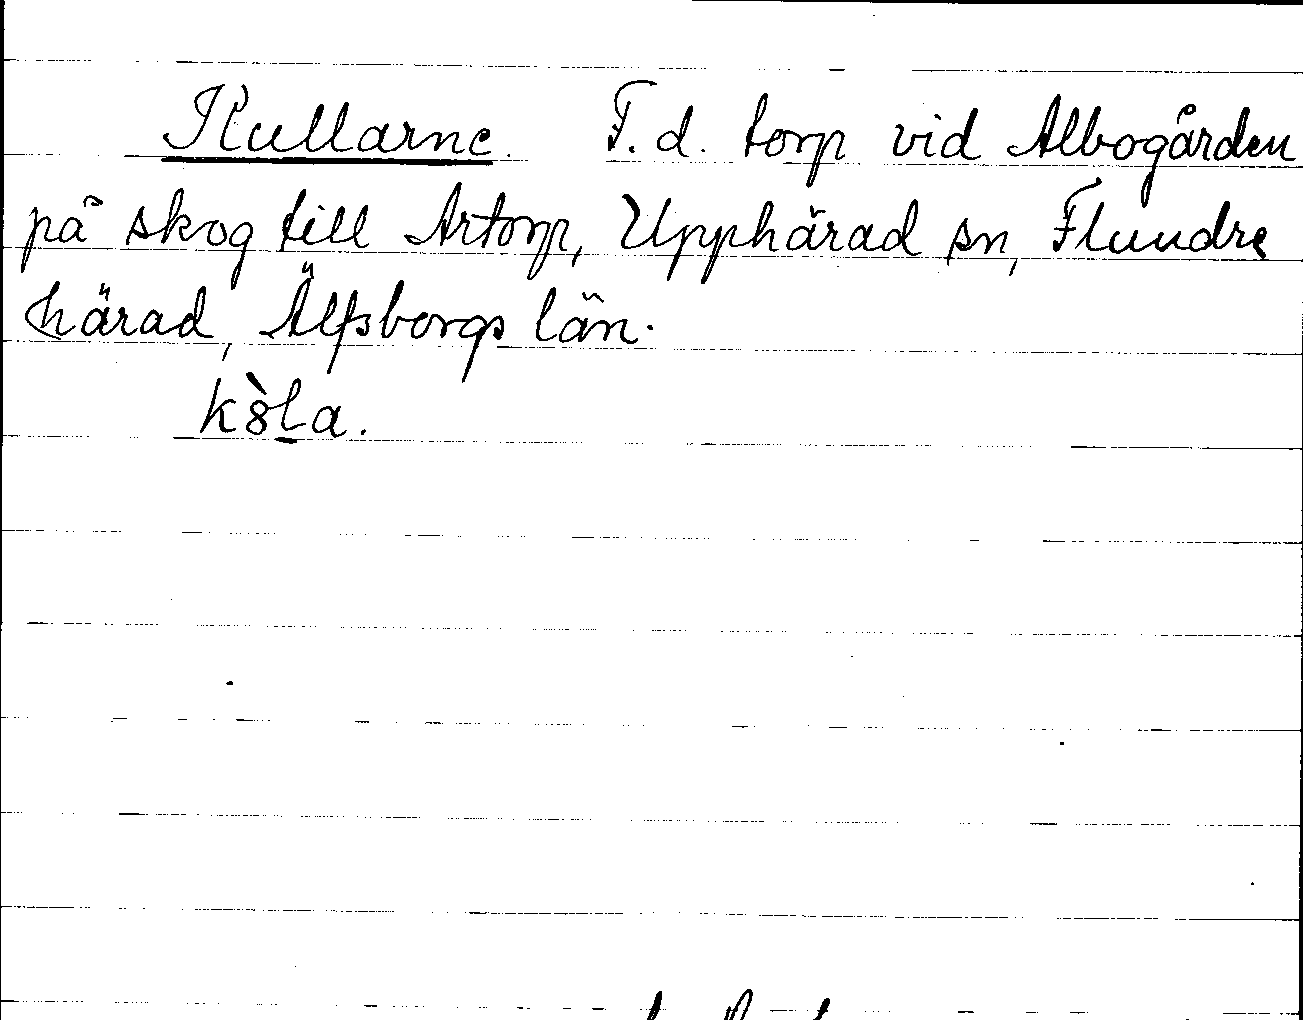 Kullarne. F.d. torp vid Albogården
på skog till Artorp, Upphärad sn, Flundre
härad, Älfsborgs län.
k8̀la.